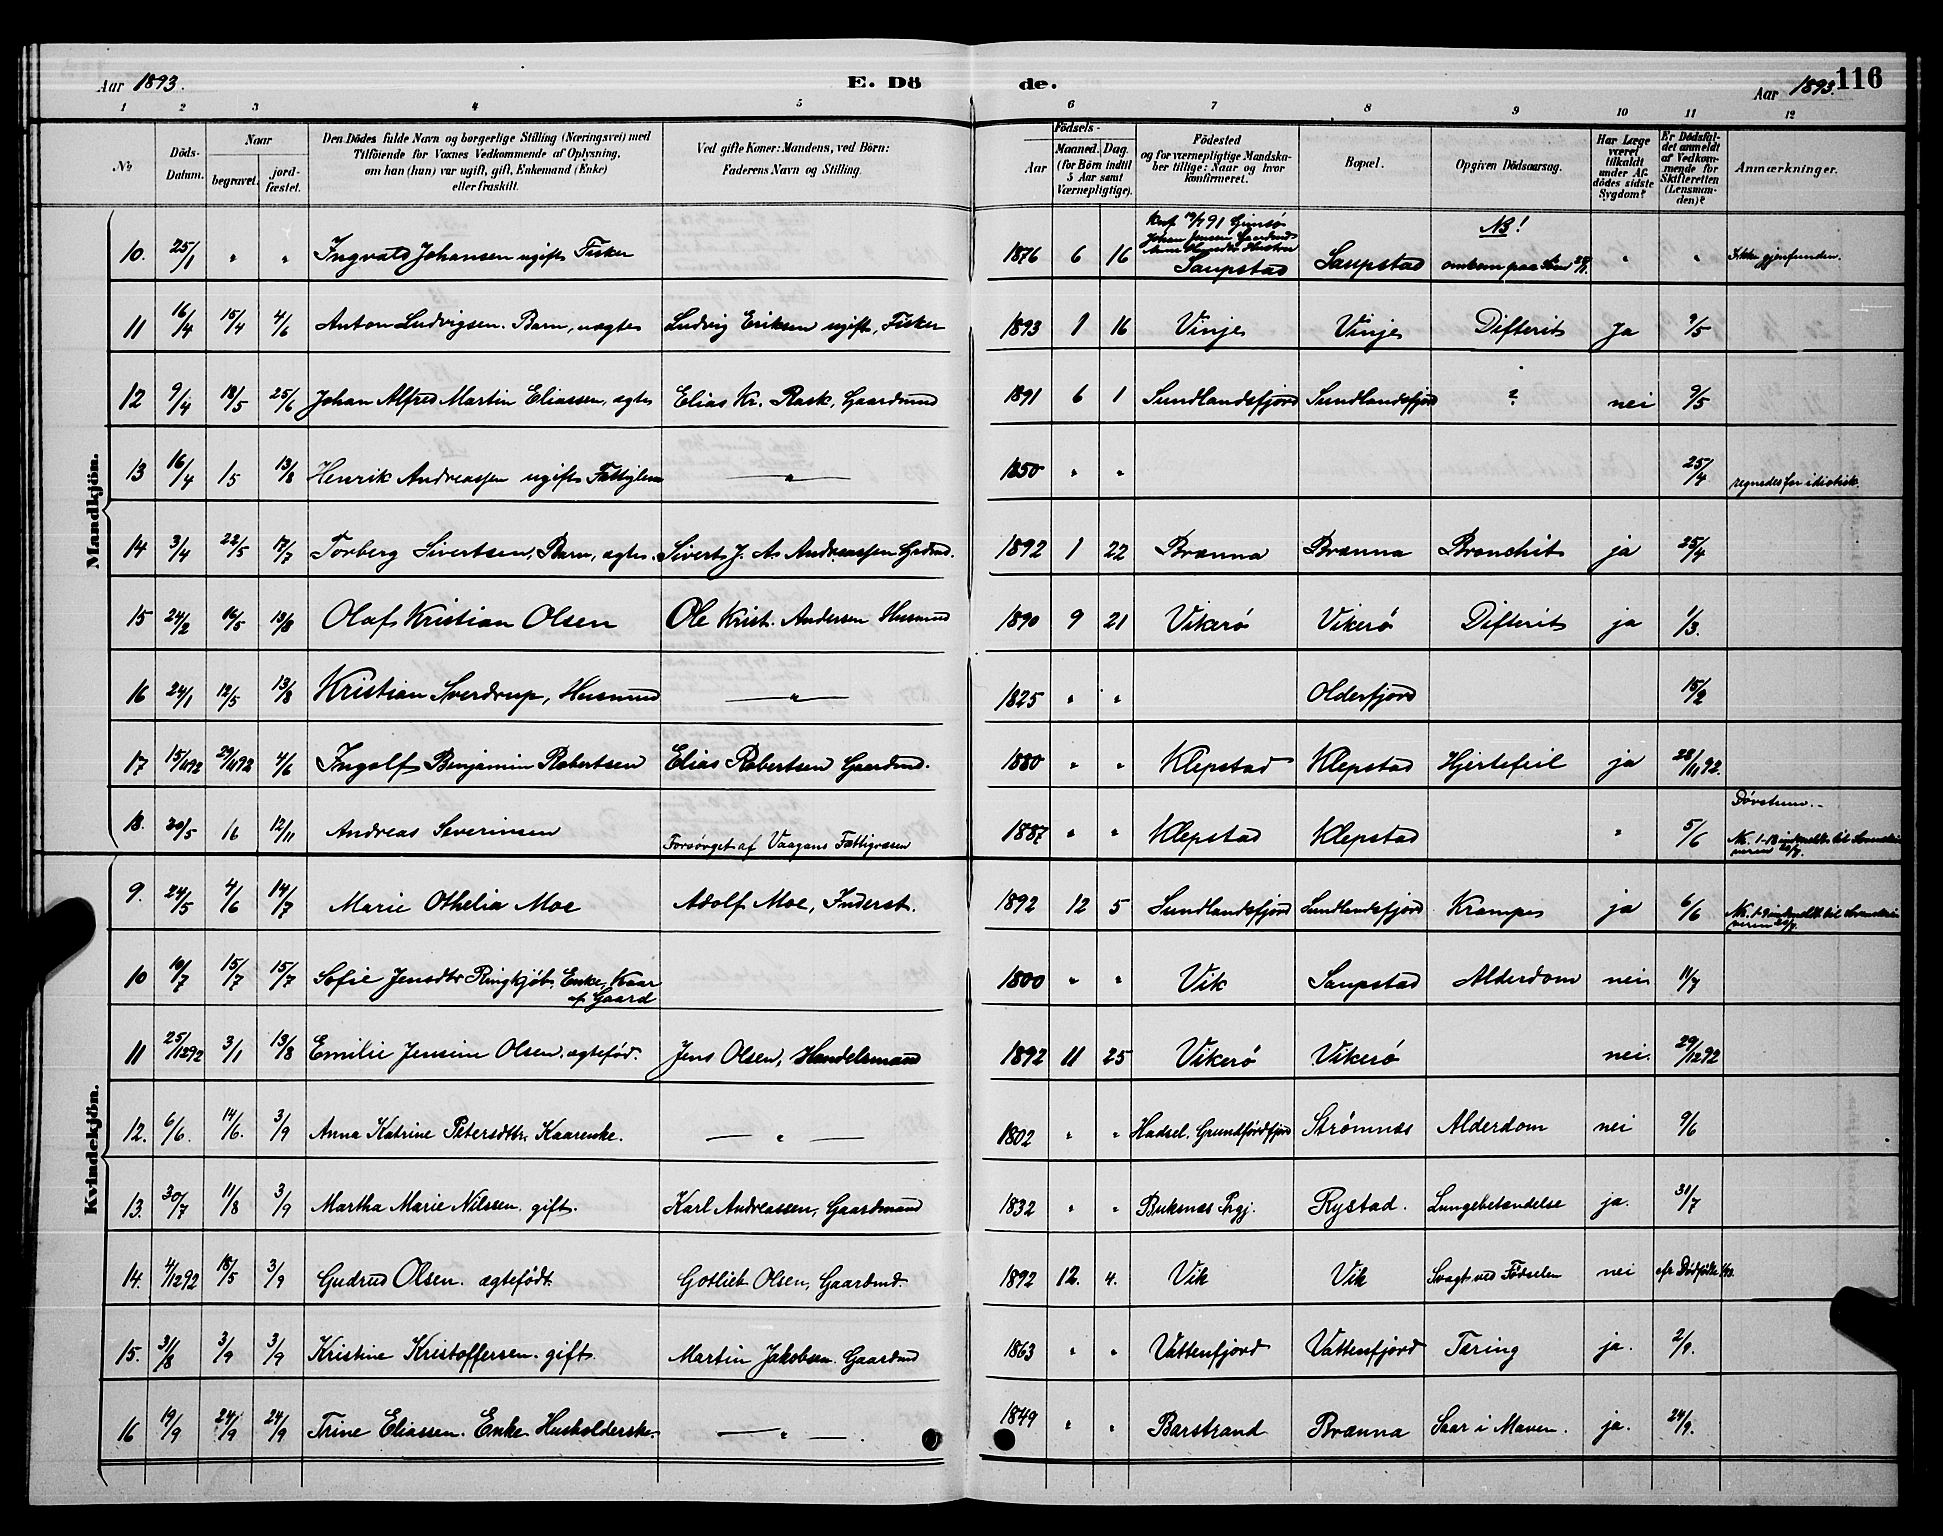 Aar 1893.
E. Dö de.
Aar 1893.
116
1 2 3 4 5 6 7 8 9 10 11 12
No
Döds-Datum.
Naar
begravet.
jordfæstet.
Den Dödes fulde Navn og borgerlige Stilling (Næringsvei) med
Tilföiende for Voxnes Vedkommende af Oplysning,
om han (hun) var ugift, gift, Enkemand (Enke)
eller fraskilt.
Ved gifte Koner: Mandens, ved Börn:
Faderens Navn og Stilling.
Födsels-
Aar
Maaned. Dag.
(for Börn indtil
5 Aar samt
Værnepligtige).
Födested
og for værnepligtige Mandska-
ber tillige: Naar og hvor
konfirmeret.
Bopæl.
Opgiven Dödsaarsag.
Har Læge
været
tilkaldt
under Af-
dödes sidste
Sygdom?
Er Dödsfal-
det anmeldt
af Vedkom-
mende for
Skifteretten
(Lensman-
den)?
Anmærkninger.
Mandkjön.
10. 25/1 " " Ingvald Johansen ugift Fisker 1876 6 16 Saupstad Saupstad NB! omkom paa Søen " " Ikke gjenfunden.
11 16/4 15/4 4/6 Anton Ludvigsen. Barn, uægte Ludvig Eriksen ugift, Fisker 1893 1 16 Vinje Vinje Difterit Ja 9/5
12 9/4 18/5 25/6 Johan Alfred Martin Eliassen, ægte Elias Kr. Rask, Gaardmand 1891 6 1 Sundlandsfjord Sundlandsfjord ? nei 9/5
13 16/4 15 13/8 Henrik Andreassen ugift Fattiglem — " — 1850 " " 25/4 regnedes for idiotisk.
14 3/4 22/5 17/7 Torberg Sivertsen, Barn, ægte. Sivert J. A. Andreassen Grdmd. 1892 1 22 Brænna Brænna Bronchit ja 25/4
15 24/2 16/5 13/8 Olaf Kristian Olsen Ole Krist. Andersen Husmand 1890 9 21 Vikerö Vikerö Difterit ja 1/3.
16 24/1 12/5 13/8 Kristian Sverdrup, Husmand — " — 1825 " " Olderfjord 15/2
17 15/11 92 29/11 92 4/6 Ingolf Benjamin Robertsen Elias Robertsen Gaardmd. 1880 " " Klepstad Klepstad Hjertefeil ja 28/11 92.
18. 30/5 16 12/11 Andreas Severinsen Forsørget af Vaagans Fattigvæsen 1887 " " Klepstad Klepstad " 5/6 Døvstum.
Kvindekjön.
9. 24/5 4/6 14/7 Marie Othelia Moe Adolf Moe, Inderst. 1892 12 5 Sundlandsfjord Sundlandsfjord Krampe ja 6/6
10 10/7 15/7 15/7 Sofie Jensdtr Ringkjöb, Enke, Kaar
af Gaard 1800 " " Vik Saupstad Alderdom nei 11/7
11 25/12 92 3/1 13/8 Emilie Jensine Olsen. ægtefød. Jens Olsen, Handelsmand 1892 11 25 Vikerö Vikerö nei. 29/12 92
12. 6/6. 14/6. 3/9 Anna Katrine Petersdttr. Kaarenke. — " — 1802 " " Hadsel, Grundförfjord Strömnæs Alderdom nei 9/6
13. 30/7 11/8 3/9 Martha Marie Nilssen. gift. Karl Andreassen, Gaardmand 1832 " " Buksnæs Prgj. Rystad. Lungebetændelse ja. 31/7
14. 4/12 92 18/5 3/9 Gudrud Olsen. ægtefødt. Gotlieb Olsen, Gaardmd. 1892 12. 4. Vik Vik Svagt ved Fødselen nei
15. 3/8 3/9 3/9 Kristine Kristoffersen. gift. Martin Jakobsen. Gaardmd 1863 " " Vattenfjord Vattenfjord Tæring ja. 2/9.
16 19/9 24/9 24/9 Trine Eliassen. Enke Husholderske. — " — 1849 " " Barstrand Brænna Saar i Maven. ja. 24/9.